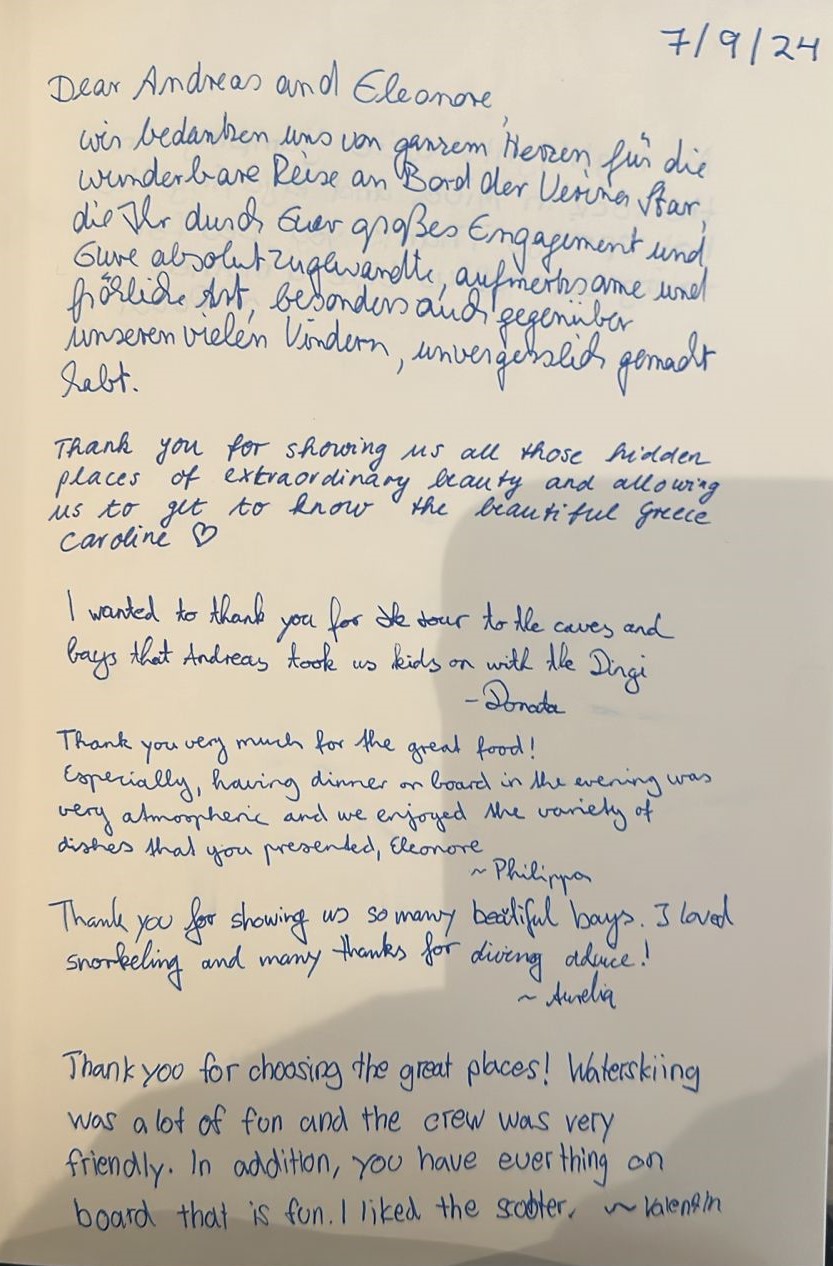 7/9/24
Dear Andreas and Eleonore,
wir bedanken uns von ganzem Herzen für die
wunderbare Reise an Bord der Verina Star,
die Ihr durch Euer großes Engagement und
Eure absolut zugewandte, aufmerksame und
fröhliche Art, besonders auch gegenüber
unseren vielen Kindern, unvergesslich gemacht
habt.
Thank you for showing us all those hidden
places of extraordinary beauty and allowing
us to get to know the beautiful Greece
Caroline ♡
I wanted to thank you for the tour to the caves and
bays that Andreas took us kids on with the Dingi
- Donata
Thank you very much for the great food!
Especially, having dinner on board in the evening was
very atmospheric and we enjoyed the variety of
dishes that you presented, Eleonore
~ Philippa
Thank you for showing us so many beatiful bays. I loved
snorkeling and many thanks for diving advice!
~ Aurelia
Thank you for choosing the great places! Waterskiing
was a lot of fun and the crew was very
friendly. In addition, you have everthing on
board that is fun. I liked the scooter. ~ Valentin